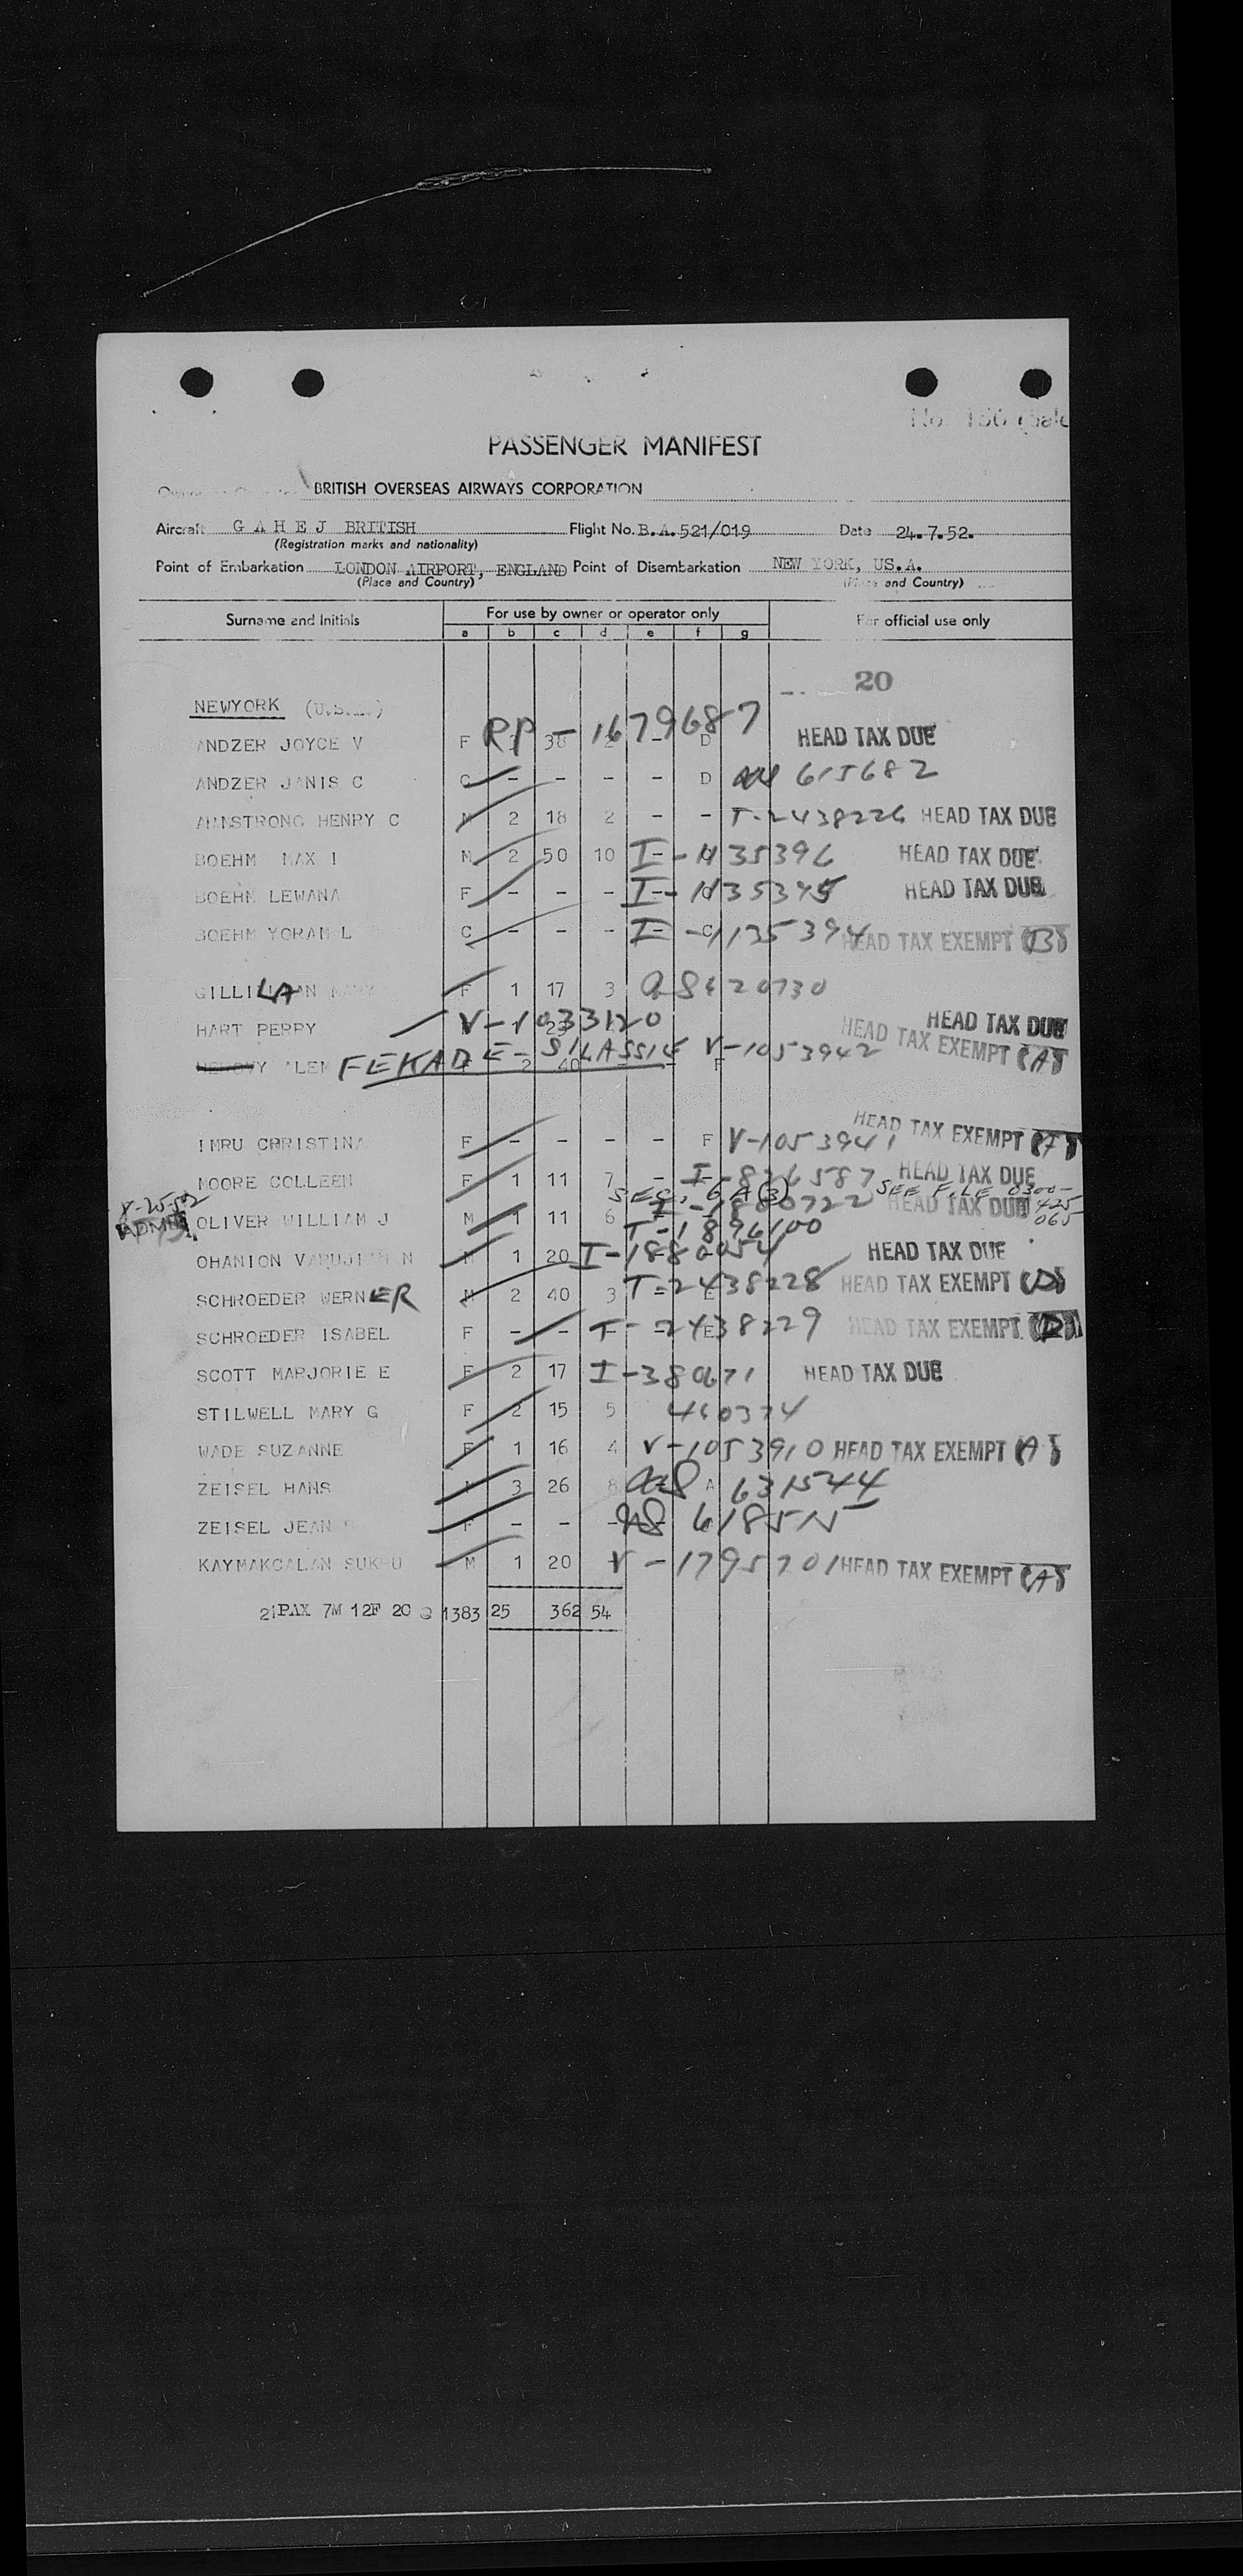 PASSENGER MANIFEST
BRITISH OVERSEAS AIRWAYS CORPORATION
Aircraft G A H E J BRITISH Flight No. B.A.521/019 Date 24.7.52.
(Registration marks and nationality)
Point of Embarkation LONDON AIRPORT, ENGLAND Point of Disembarkation NEW YORK, US.A.
(Place and Country) (Place and Country)
Surname and Initials For use by owner or operator only For official use only
a b c d e f g
20
NEWYORK (U.S.A.)
ANDZER JOYCE V F RP-1679687 D HEAD TAX DUE
ANDZER JANIS C C - - - - D 615682
ARMSTRONG HENRY C M 2 18 2 - - T-2438226 HEAD TAX DUE
BOEHM MAX I M 2 50 10 I-1135396 HEAD TAX DUE
BOEHM LEWANA F - - - I-1135395 HEAD TAX DUE
BOEHM YORAM L C - - - I-1135394 HEAD TAX EXEMPT (B)
GILLILAAN MARY F 1 17 3
HART PERRY V-1033120 HEAD TAX DUE
FEKADE-SILASSIE V-1053942 HEAD TAX EXEMPT (A)
2 40 - - F
IMRU CHRISTINA F - - - - F V-1053941 HEAD TAX EXEMPT
MOORE COLLEEN F 1 11 7 - I-826587 HEAD TAX DUE
SEC. 6A(3) SEE FILE 0300-
425
065
OLIVER WILLIAM J M 1 11 6 I-1800722 HEAD TAX DUE
T-1896100
OHANION M 1 20 I-1880054 HEAD TAX DUE
SCHROEDER WERNER M 2 40 3 T-2438228 HEAD TAX EXEMPT (D)
SCHROEDER ISABEL F - - T-2438229 E HEAD TAX EXEMPT (D)
SCOTT MARJORIE E F 2 17 I-380671 HEAD TAX DUE
STILWELL MARY G F 2 15 5 460374
WADE SUZANNE F 1 16 4 V-1053910 HEAD TAX EXEMPT (A)
ZEISEL HANS M 3 26 8 A 631544
ZEISEL JEAN F - - -
KAYMAKCALAN SUKRU M 1 20 V-1795701 HEAD TAX EXEMPT (A)
21PAX 7M 12F 2C 1383 25 362 54